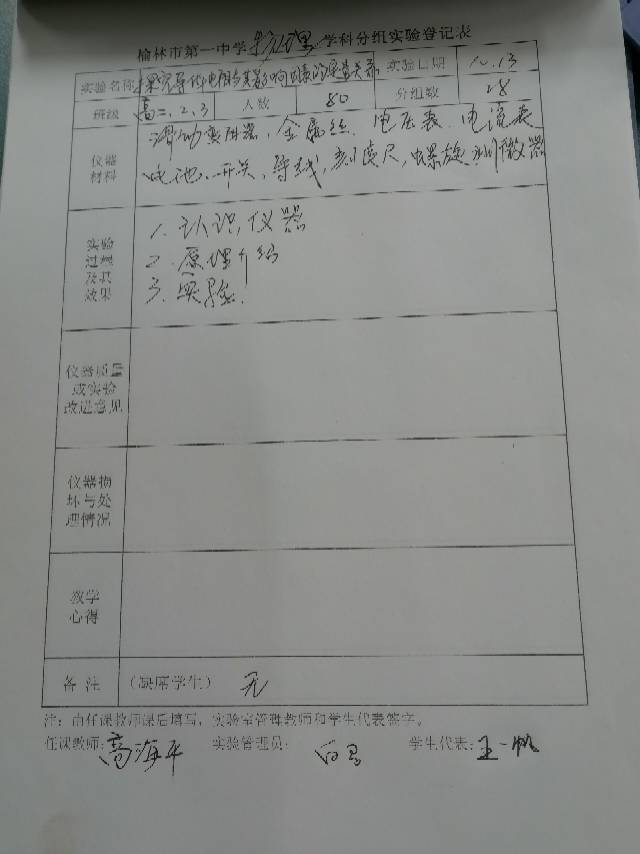 榆林市第一中学物理学科分组实验登记表
实验名称 探究导体电阻与其影响因素的定量关系 实验日期 10.13
班级 高二.2,3 人数 80 分组数 28
仪器材料 滑动变阻器,金属丝.电压表.电流表
电池.开关,导线,刻度尺,螺旋测微器
实验过程及其效果 1.认识仪器
2.原理介绍
3.实验.
仪器质量或实验改进意见
仪器损坏与处理情况
教学心得
备注 (缺席学生) 无
注:由任课教师课后填写,实验室管理教师和学生代表签字。
任课教师:高海平 实验管理员: 学生代表:王一帆